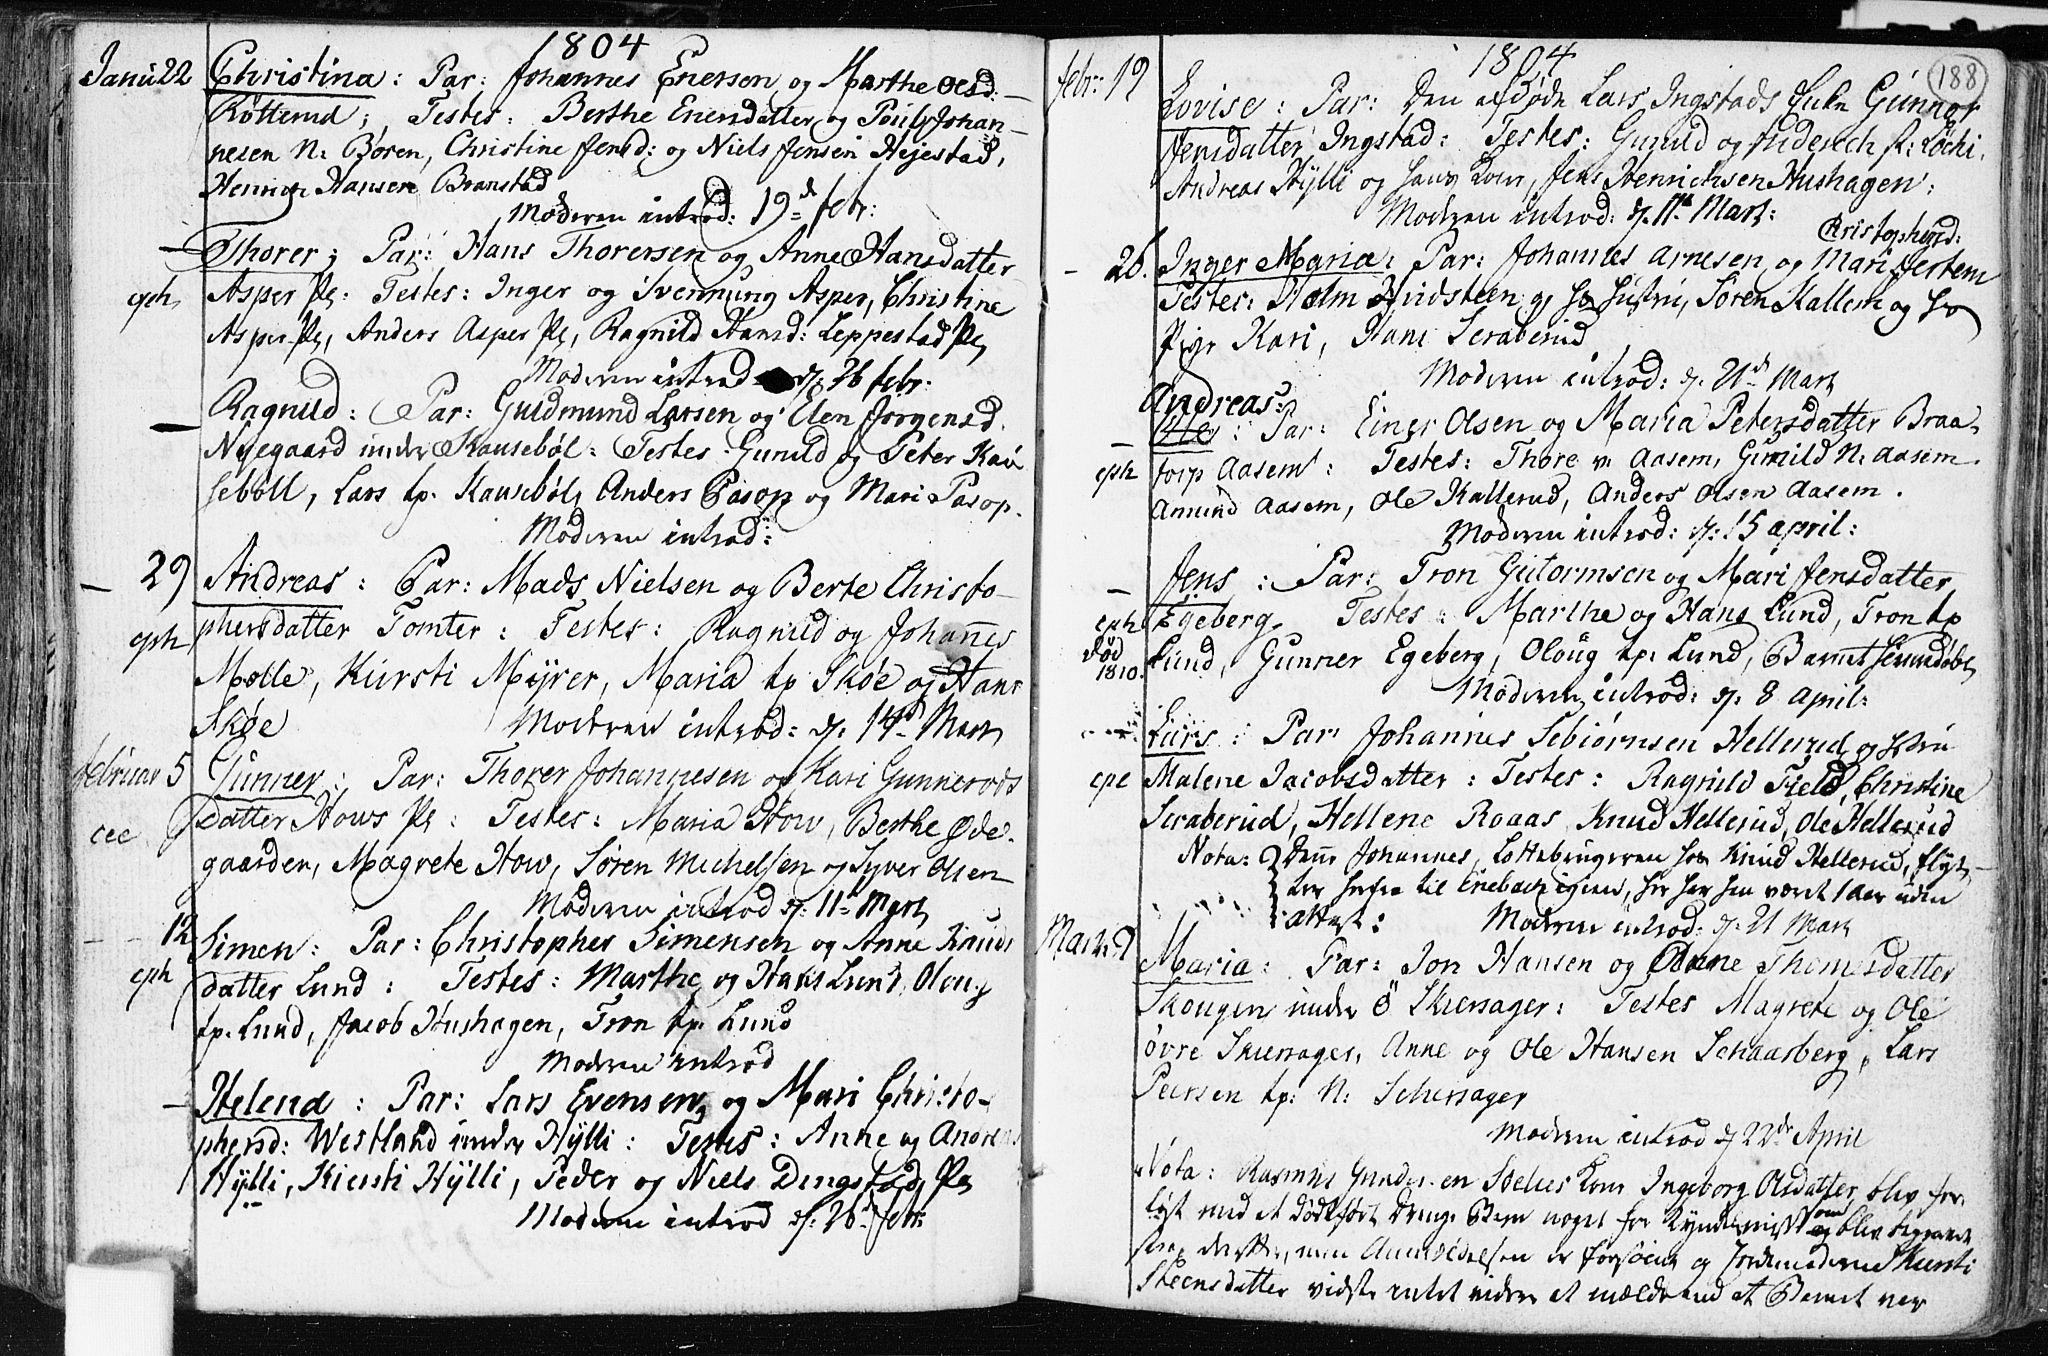 1804
Janu: 22 Christina: Par: Johannes Enersen og Marthe Olsd:
Røtterud; Testes: Berthe Enersdatter og Poul Johan-
nesen N: Børen, Christine Jensd: og Niels Jensen Hejestad,
Henrich Hansen Branstad
Moderen introd: 19d febr:
— Thorer; Par: Hans Thorersen og Anne Hansdatter
eph Asper Pl: Testes: Inger og Svennung Asper, Christine
Asper Pl, Anders Asper Pl, Ragnild Hansd: Leppestad Pl
Moderen introd d: 26 febr:
— Ragnild: Par: Guldmund Larsen og Elen Jørgensd.
Nyegaard under Kausebøl: Testes: Gunild og Peter Kau
seböll, Lars tp: Kausebøl, Anders Pasop og Mari Pasop.
Moderen introd:
— 29 Andreas: Par: Mads Nielsen og Berte Christo-
eph phersdatter Tomter: Testes: Ragnild og Johannes
Mølle, Kiersti Myrer, Maria tp Skøe og Hans
Skøe Moderen introd: d: 14d Mart
februar 5 Gunner: Par: Thorer Johannesen og Kari Gunnerods
cce datter Hows Pl: Testes: Maria How, Berthe Øde-
gaarden, Magrete How, Søren Michelsen og Syver Olsen
Moderen introd d: 11d Mart
— 12 Simen: Par: Christopher Simensen og Anne Knuds
eph datter Lund: Testes: Marthe og Hans Lund, Oloug
tp. Lund, Jacob Hushagen, Tron tp. Lund
Moderen introd
— Helena: Par: Lars Evensen og Mari Christo-
phersd: Westland under Hÿlli: Testes: Anne og Andreas
Hÿlli, Kiersti Hÿlli, Peder og Niels Dingstad Pl
Moderen introd d: 26d febr:
1804
188
febr: 19 Lovise: Par: Den afdøde Lars Ingstads Enke Gunnor
Jensdatter Ingstad: Testes: Gunild og Friderich Løchi.
Andreas Hÿlli og hans Kone, Jens Henrichsen Hushagen:
Moderen introd: d. 11te Mart:
Christophersd:
— 26. Inger Maria: Par: Johannes Arnesen og Mari Jestem
Testes: Holm Hindsteen og Hustru, Søren Kallem og
Pige Kari, Hans Scraberud
Moderen introd: d. 21d Mart
Andreas:
Ole: Par: Einer Olsen og Maria Petersdatter Braa-
— eph torp Aasem: Testes: Thore v. Aasem, Gunild N: Aasem
Amund Aasem, Ole Kallerud, Anders Olsen Aasem.
Moderen introd: d: 15 april:
— Jens: Par: Tron Gutormsen og Mari Jensdatter
eph Egeberg. Testes: Marthe og Hans Lund, Tron tp
død
1810. Lund, Gunner Egeberg, Oloug tp. Lund, Barnet
Moderen introd: d. 8 april:
Lars: Par: Johannes Sebiörnsen Hellerud og Hustru
Malene Jacobsdatter: Testes: Ragnild Field, Christine
Scraberud, Hellene Roaas, Knud Hellerud, Ole Hellerud
Nota: Denne Johannes, Lottebrugeren hos Knud Hellerud, flyt-
ter herfra til Enebach igien, her har han været 1 aar uden
attest: Moderen introd: d: 21 Mart
Mart: Maria: Par: Jon Hansen og Anne Thomesdatter
Skougen under Ö Skiersager: Testes Magrete og Ole
övre Skiersager, Anne og Ole Hansen Schaasberg, Lars
Peersen tp: N: Schersager
Moderen introd d 22de April
Nota: Rasmus Gundersen Kone Ingeborg Olsdatter blev for
løst med et dødfødt Drenge Barn noget før Kyndelmisse og blev begravet
strax derefter, men er forsøemt og Jordemoderen Kiersti
Steensdatter vidste intet videre at mælde end at Barnet var